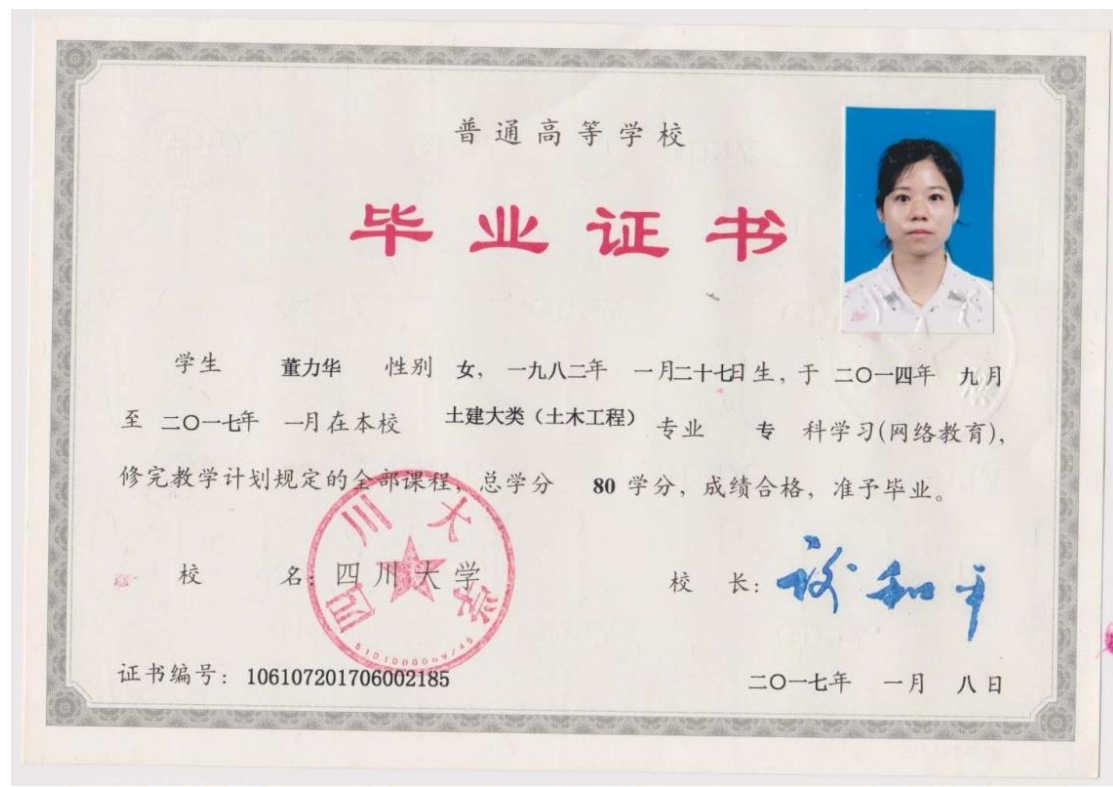 普通高等学校
毕业证书
学生 董力华 性别 女, 一九八二年 一月二十七日生, 于 二〇一四年 九月
至 二〇一七年 一月在本校 土建大类（土木工程） 专业 专 科学习(网络教育),
修完教学计划规定的全部课程, 总学分 80 学分, 成绩合格, 准予毕业。
校 名: 四川大学
四川大学
校 长: 谢和平
证书编号: 106107201706002185
二〇一七年 一月 八日